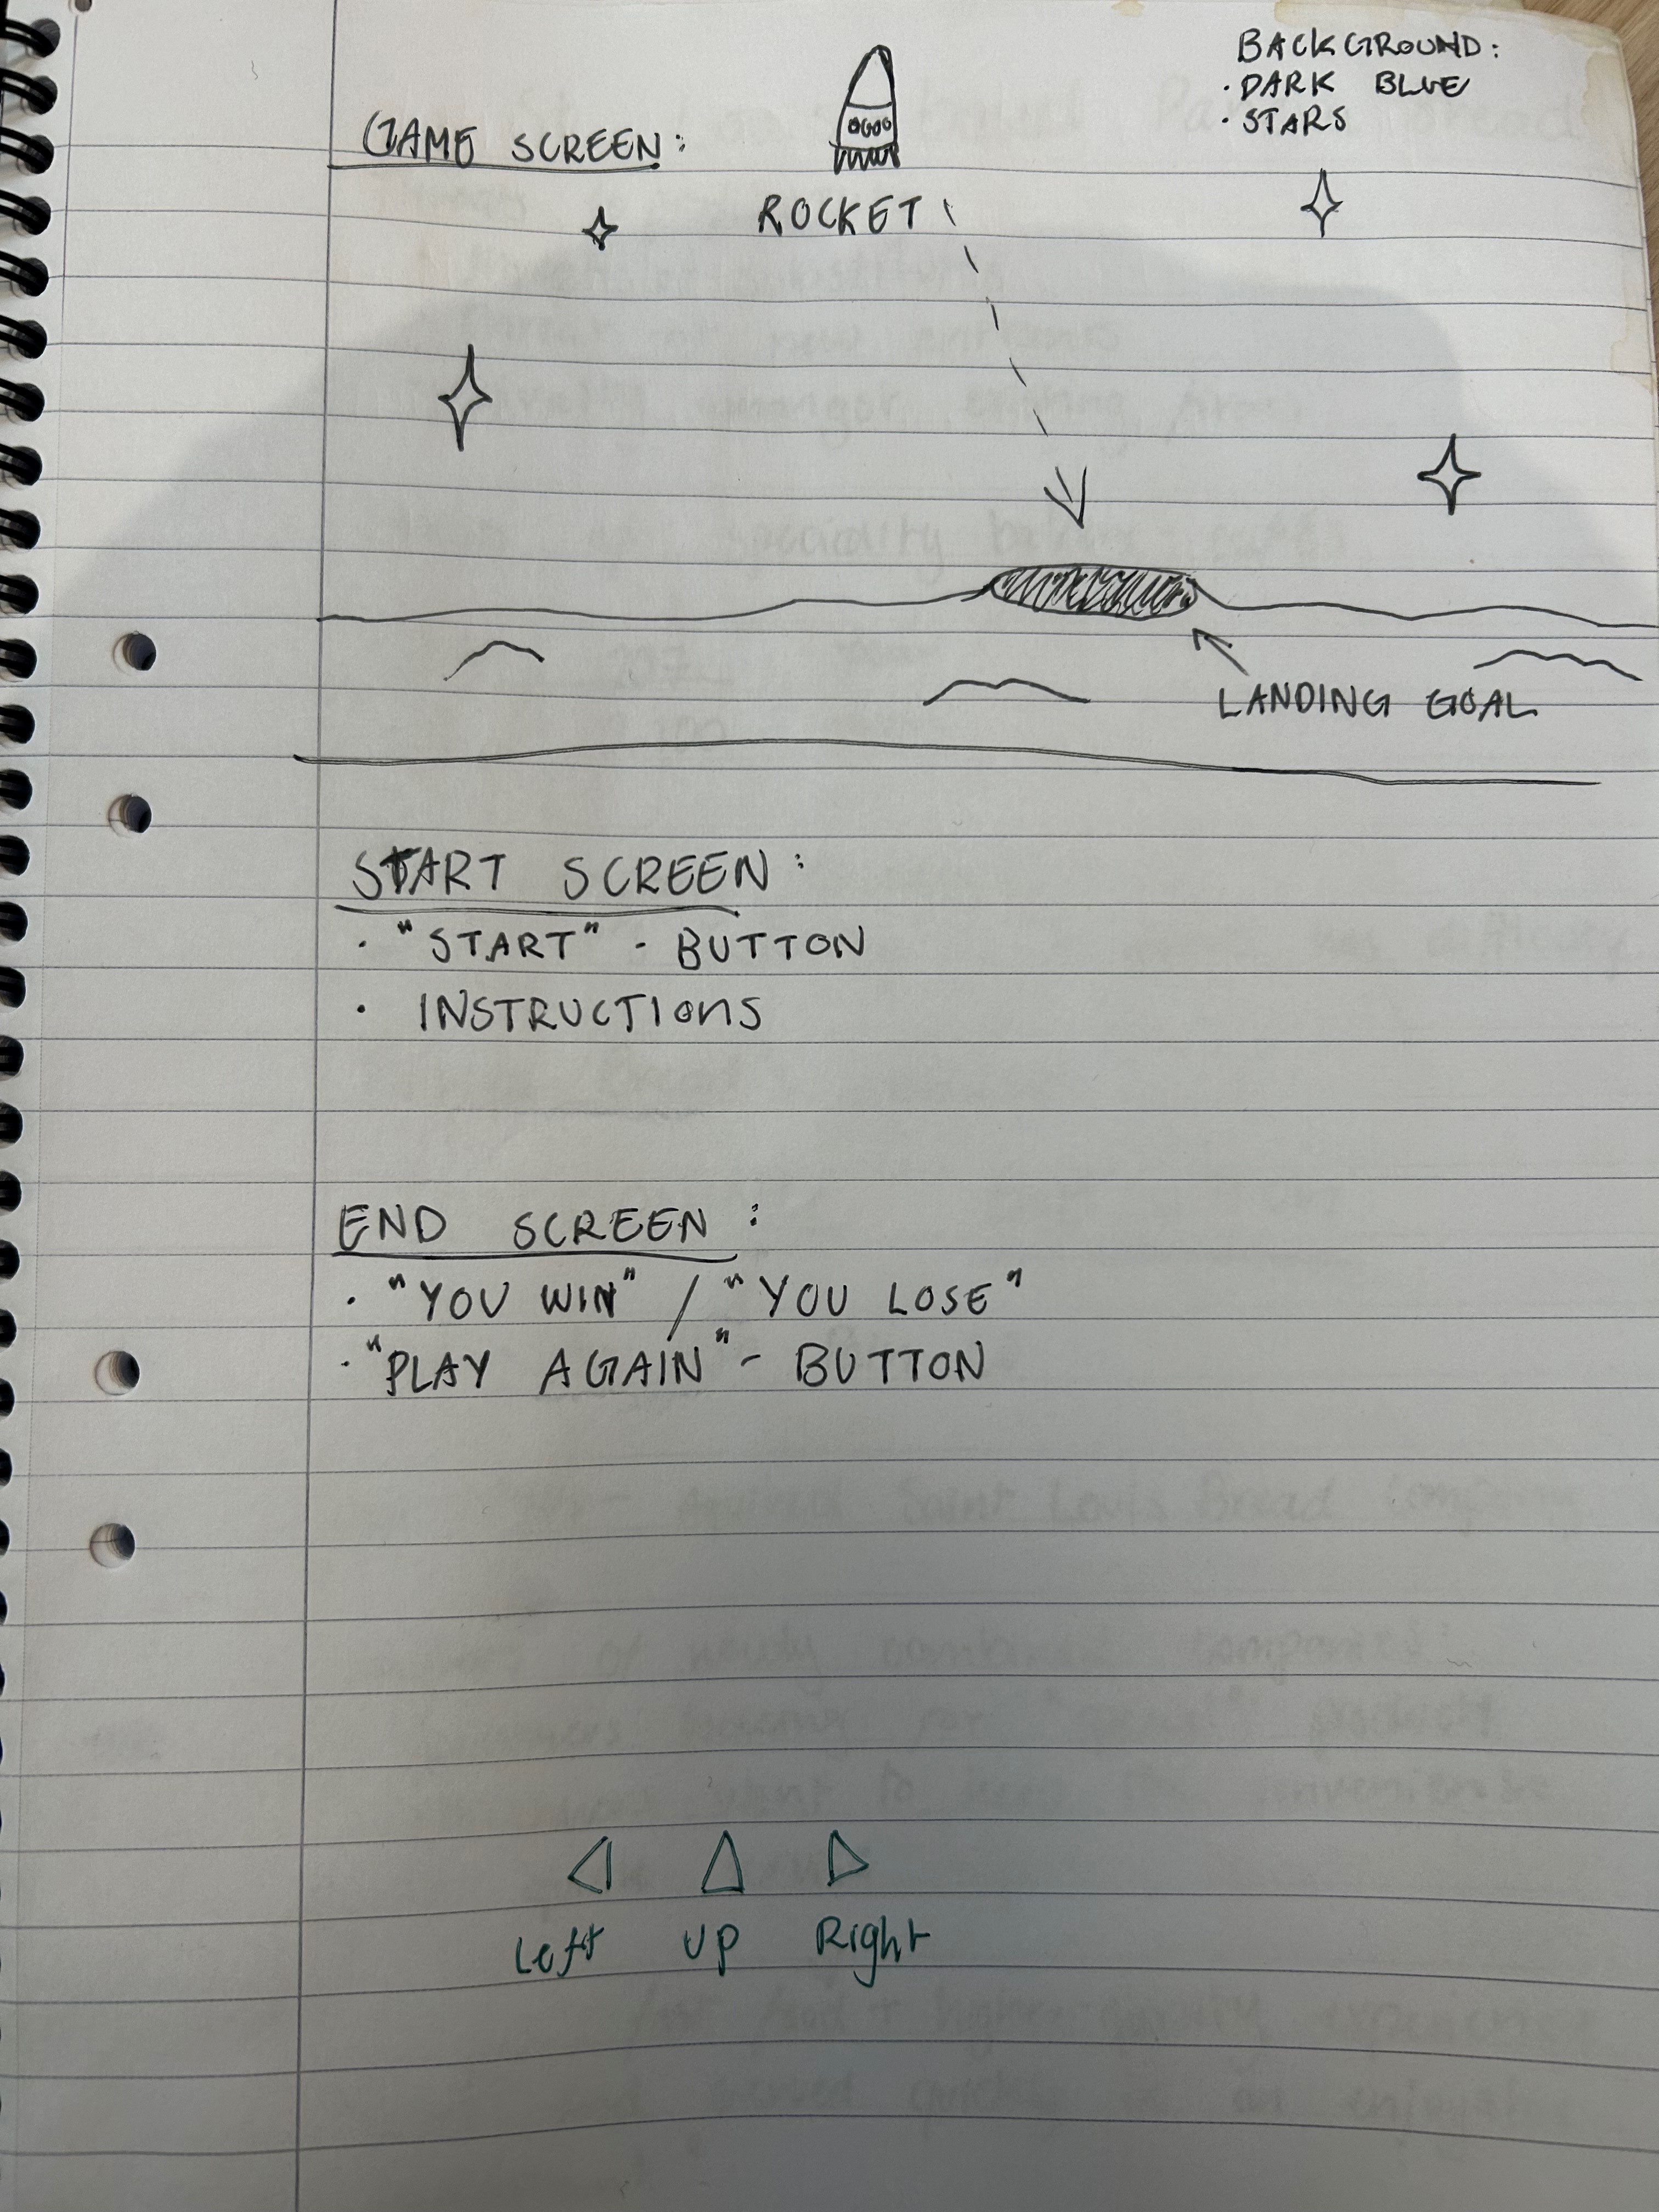 BACKGROUND:
· DARK BLUE
· STARS
GAME SCREEN:
ROCKET
LANDING GOAL
START SCREEN:
· "START" - BUTTON
· INSTRUCTIONS
END SCREEN:
· "YOU WIN" / "YOU LOSE"
· "PLAY AGAIN" - BUTTON
Left Up Right